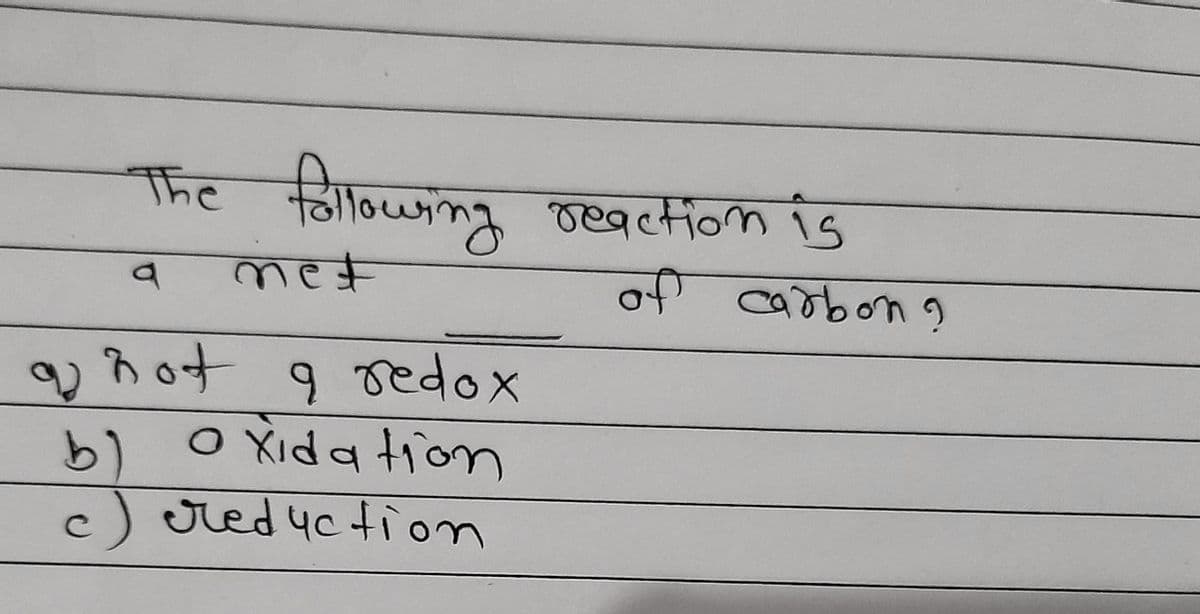 The following reaction is
a net ___ of carbon?
a) not a redox
b) oxidation
c) reduction